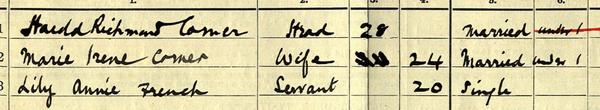 1. 2. 3. 4. 5. 6.
Harold Richmond Comer Head 28 Married under 1
2 Marie Irene Comer Wife 24 Married under 1
3 Lily Annie French Servant 20 Single